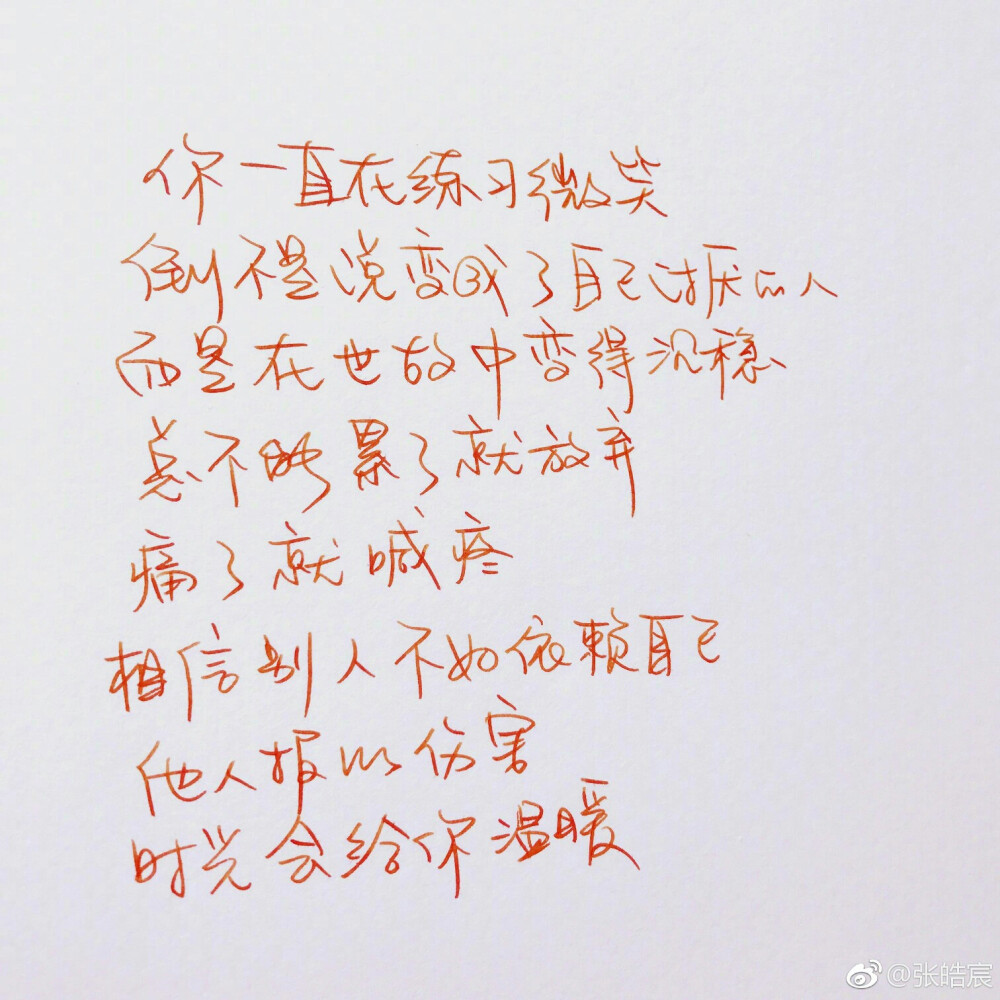 你一直在练习微笑
倒不是说变成了自己讨厌的人
而是在世故中变得沉稳
总不能累了就放弃
痛了就喊疼
相信别人不如依赖自己
他人报以伤害
时光会给你温暖
@张皓宸